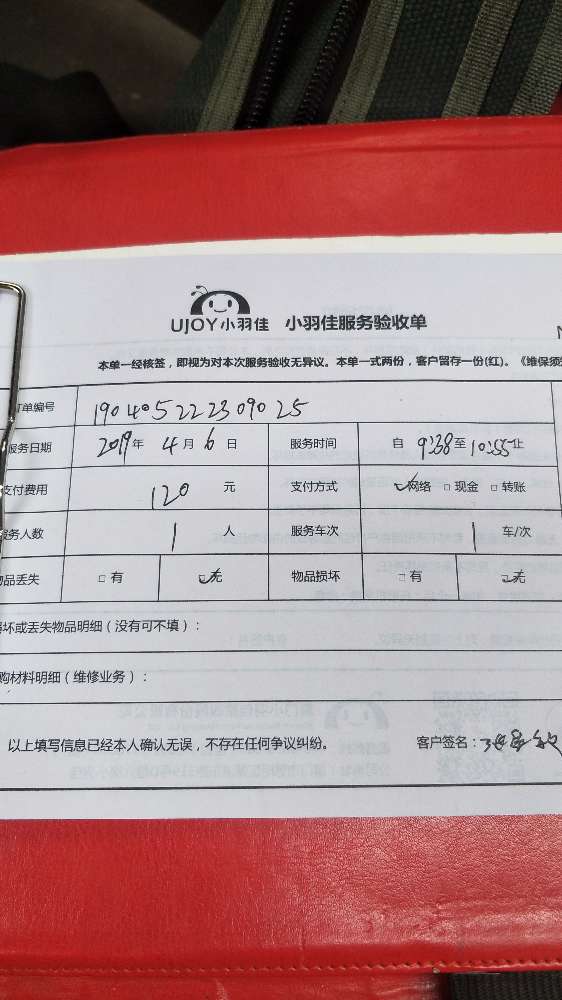 UJOY小羽佳 小羽佳服务验收单
本单一经核签，即视为对本次服务验收无异议。本单一式两份，客户留存一份(红)。《维保须
订单编号 190405222309025
服务日期 2019年 4月 6日 服务时间 自 9:38至 10:55止
支付费用 120 元 支付方式 ☑网络 □现金 □转账
服务人数 1 人 服务车次 1 车/次
物品丢失 □有 ☑无 物品损坏 □有 ☑无
损坏或丢失物品明细（没有可不填）：
购材料明细（维修业务）：
以上填写信息已经本人确认无误，不存在任何争议纠纷。 客户签名：